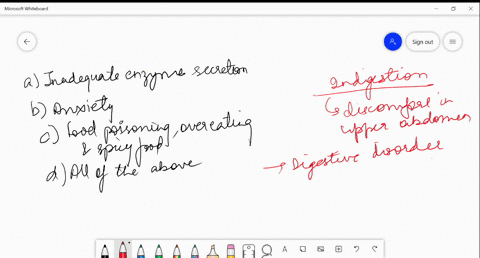 Microsoft Whiteboard
Sign out
a) Inadequate enzyme secretion
b) Anxiety
c) Food poisoning, overeating
& spicy food
d) All of the above
Indigestion
↳ discomfort in
upper abdomen
→ Digestive disorder
A